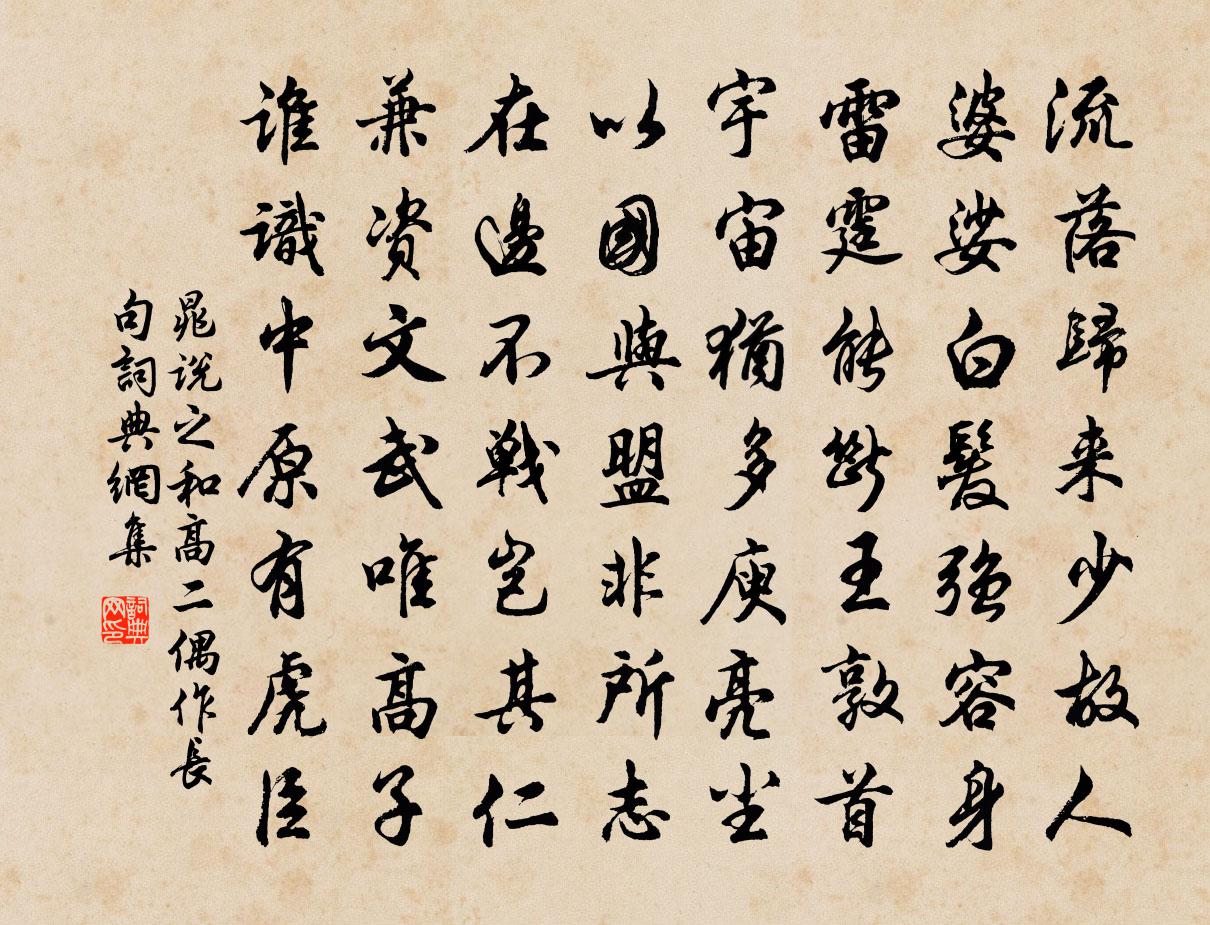 流落歸来少故人
婆娑白髮強容身
雷霆能斷王敦首
宇宙猶多庾亮塵
以國與盟非所志
在邊不戰豈其仁
兼資文武唯高子
誰識中原有虎臣
晁说之和高二偶作長
句詞典網集
詞典
网印